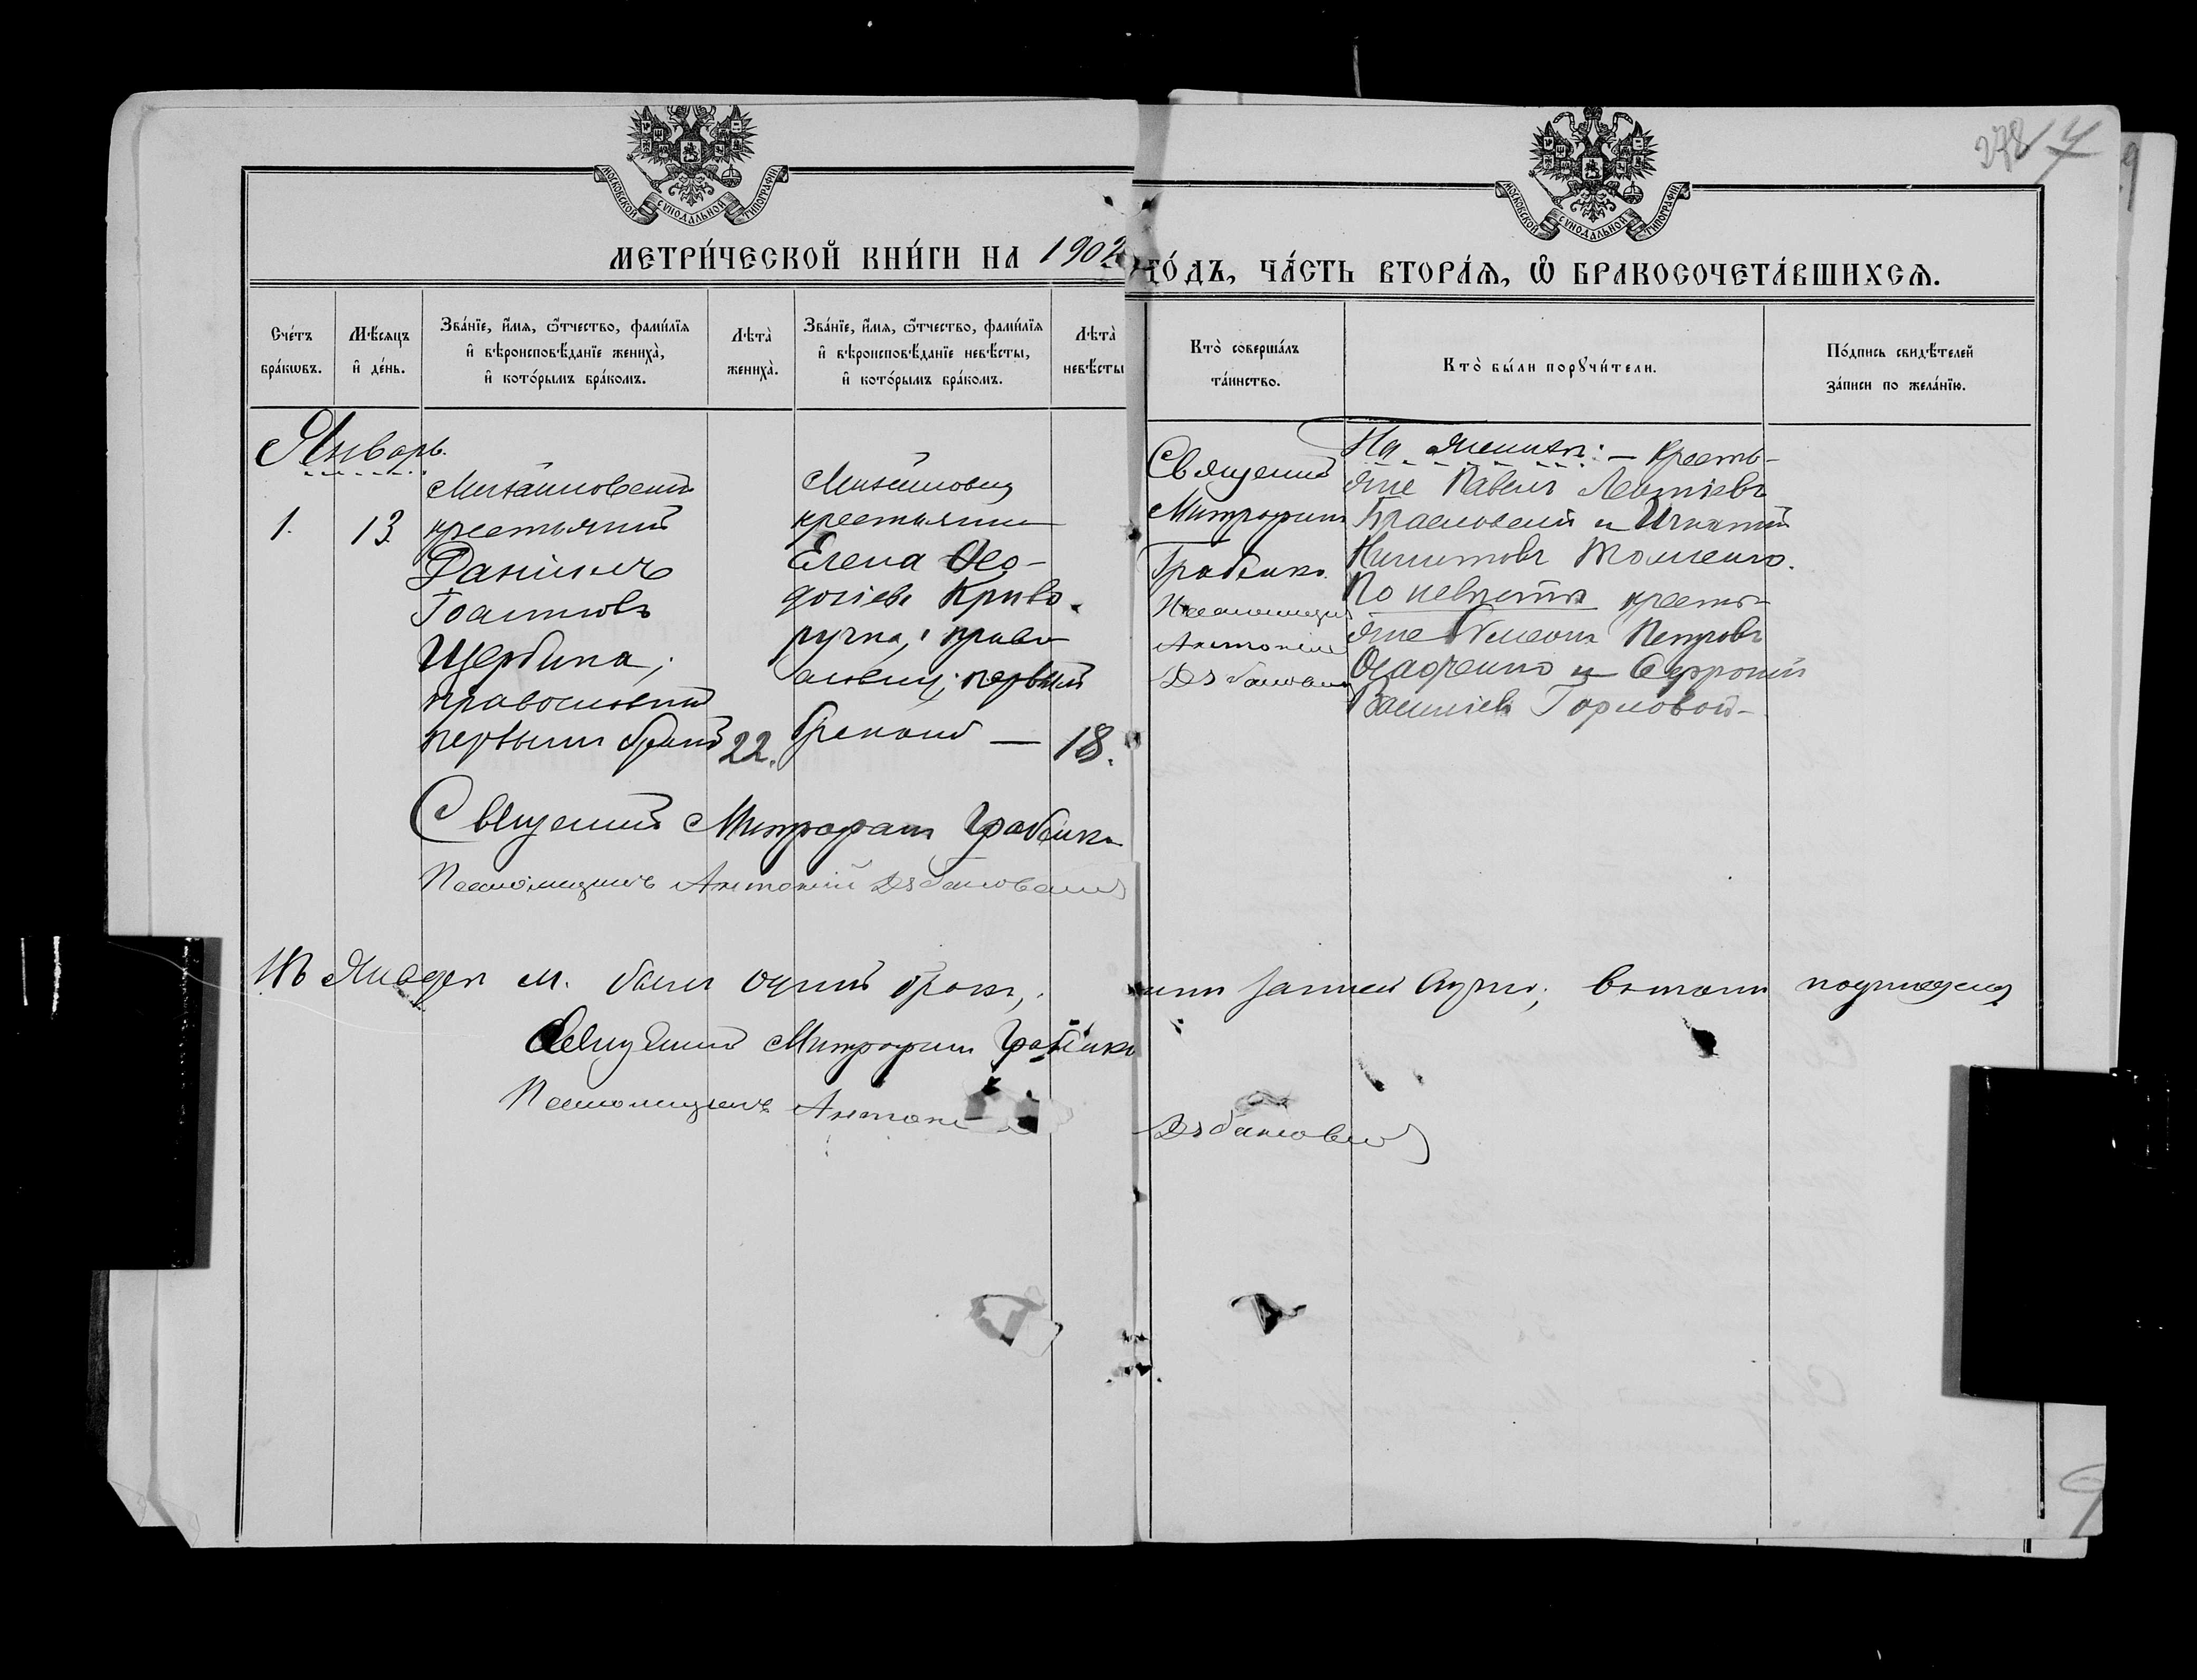 278 7
МОСКОВСКОЙ СУНОДАЛЬНОЙ ТИПОГРАФІИ
МОСКОВСКОЙ СУНОДАЛЬНОЙ ТИПОГРАФІИ
МЕТРИ́ЧЕСКОЙ КНИ́ГИ НА 1902
ГО́ДЪ, ЧА́СТЬ ВТОРА́Ѧ, Ѡ҆ БРАКОСОЧЕТА́ВШИХСѦ.
Сче́тъ бра́кѡвъ.
Мѣ́сѧцъ и҆ де́нь.
Зва́нїе, и҆́мѧ, ѻ҆́тчество, фами́лїѧ
и҆ вѣроисповѣ́данїе жениха̀,
и҆ кото́рымъ бра́комъ.
Лѣта̀ жениха̀.
Зва́нїе, и҆́мѧ, ѻ҆́тчество, фами́лїѧ
и҆ вѣроисповѣ́данїе невѣ́сты,
и҆ кото́рымъ бра́комъ.
Лѣта̀ невѣ́сты
Кто̀ соверша́лъ
та́инство.
Кто̀ бы́ли порꙋчи́тели.
По́дпись свидѣ́телей
за́писи по жела́нїю.
Январь.
1.
13
Михайловскій
крестьянинъ
Даніилъ
Іоанновъ
Щербина,
православный
первымъ бракомъ
22.
Михайловск
крестьянка
Елена Ѳео-
досіева Криво-
ручка, право-
славн; первымъ
бракомъ — 18.
Священникъ
Митрофанъ
Грабенко
Псаломщикъ
Антоній
На женихѣ: — кресть-
яне Павелъ Леонтіевъ
и Игнатій
Никитовъ
По невѣстѣ кресть-
яне Симеонъ Петровъ
Осадченко и Софроній
Василіевъ Горловой
Священникъ Митрофанъ Грабенко
Псаломщикъ Антоній
Въ Январѣ м. былъ одинъ бракъ,
записи вѣрно; въ томъ подписуемся
Священникъ Митрофанъ Грабенко
Псаломщикъ Антоній